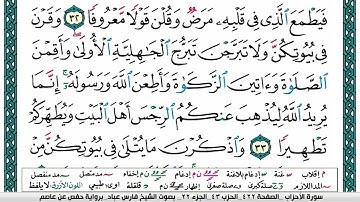 فَيَطْمَعَ ٱلَّذِى فِى قَلْبِهِۦ مَرَضٌ وَقُلْنَ قَوْلًا مَّعْرُوفًا ٣٢ وَقَرْنَ
فِى بُيُوتِكُنَّ وَلَا تَبَرَّجْنَ تَبَرُّجَ ٱلْجَٰهِلِيَّةِ ٱلْأُولَىٰ وَأَقِمْنَ
ٱلصَّلَوٰةَ وَءَاتِينَ ٱلزَّكَوٰةَ وَأَطِعْنَ ٱللَّهَ وَرَسُولَهُۥٓ إِنَّمَا
يُرِيدُ ٱللَّهُ لِيُذْهِبَ عَنكُمُ ٱلرِّجْسَ أَهْلَ ٱلْبَيْتِ وَيُطَهِّرَكُمْ
تَطْهِيرًا ٣٣ وَٱذْكُرْنَ مَا يُتْلَىٰ فِى بُيُوتِكُنَّ مِنْ
سورة الأحزاب . الصفحة ٤٢٢ . الحزب ٤٣ . الجزء ٢٢ . بصوت الشيخ فارس عباد . برواية حفص عن عاصم